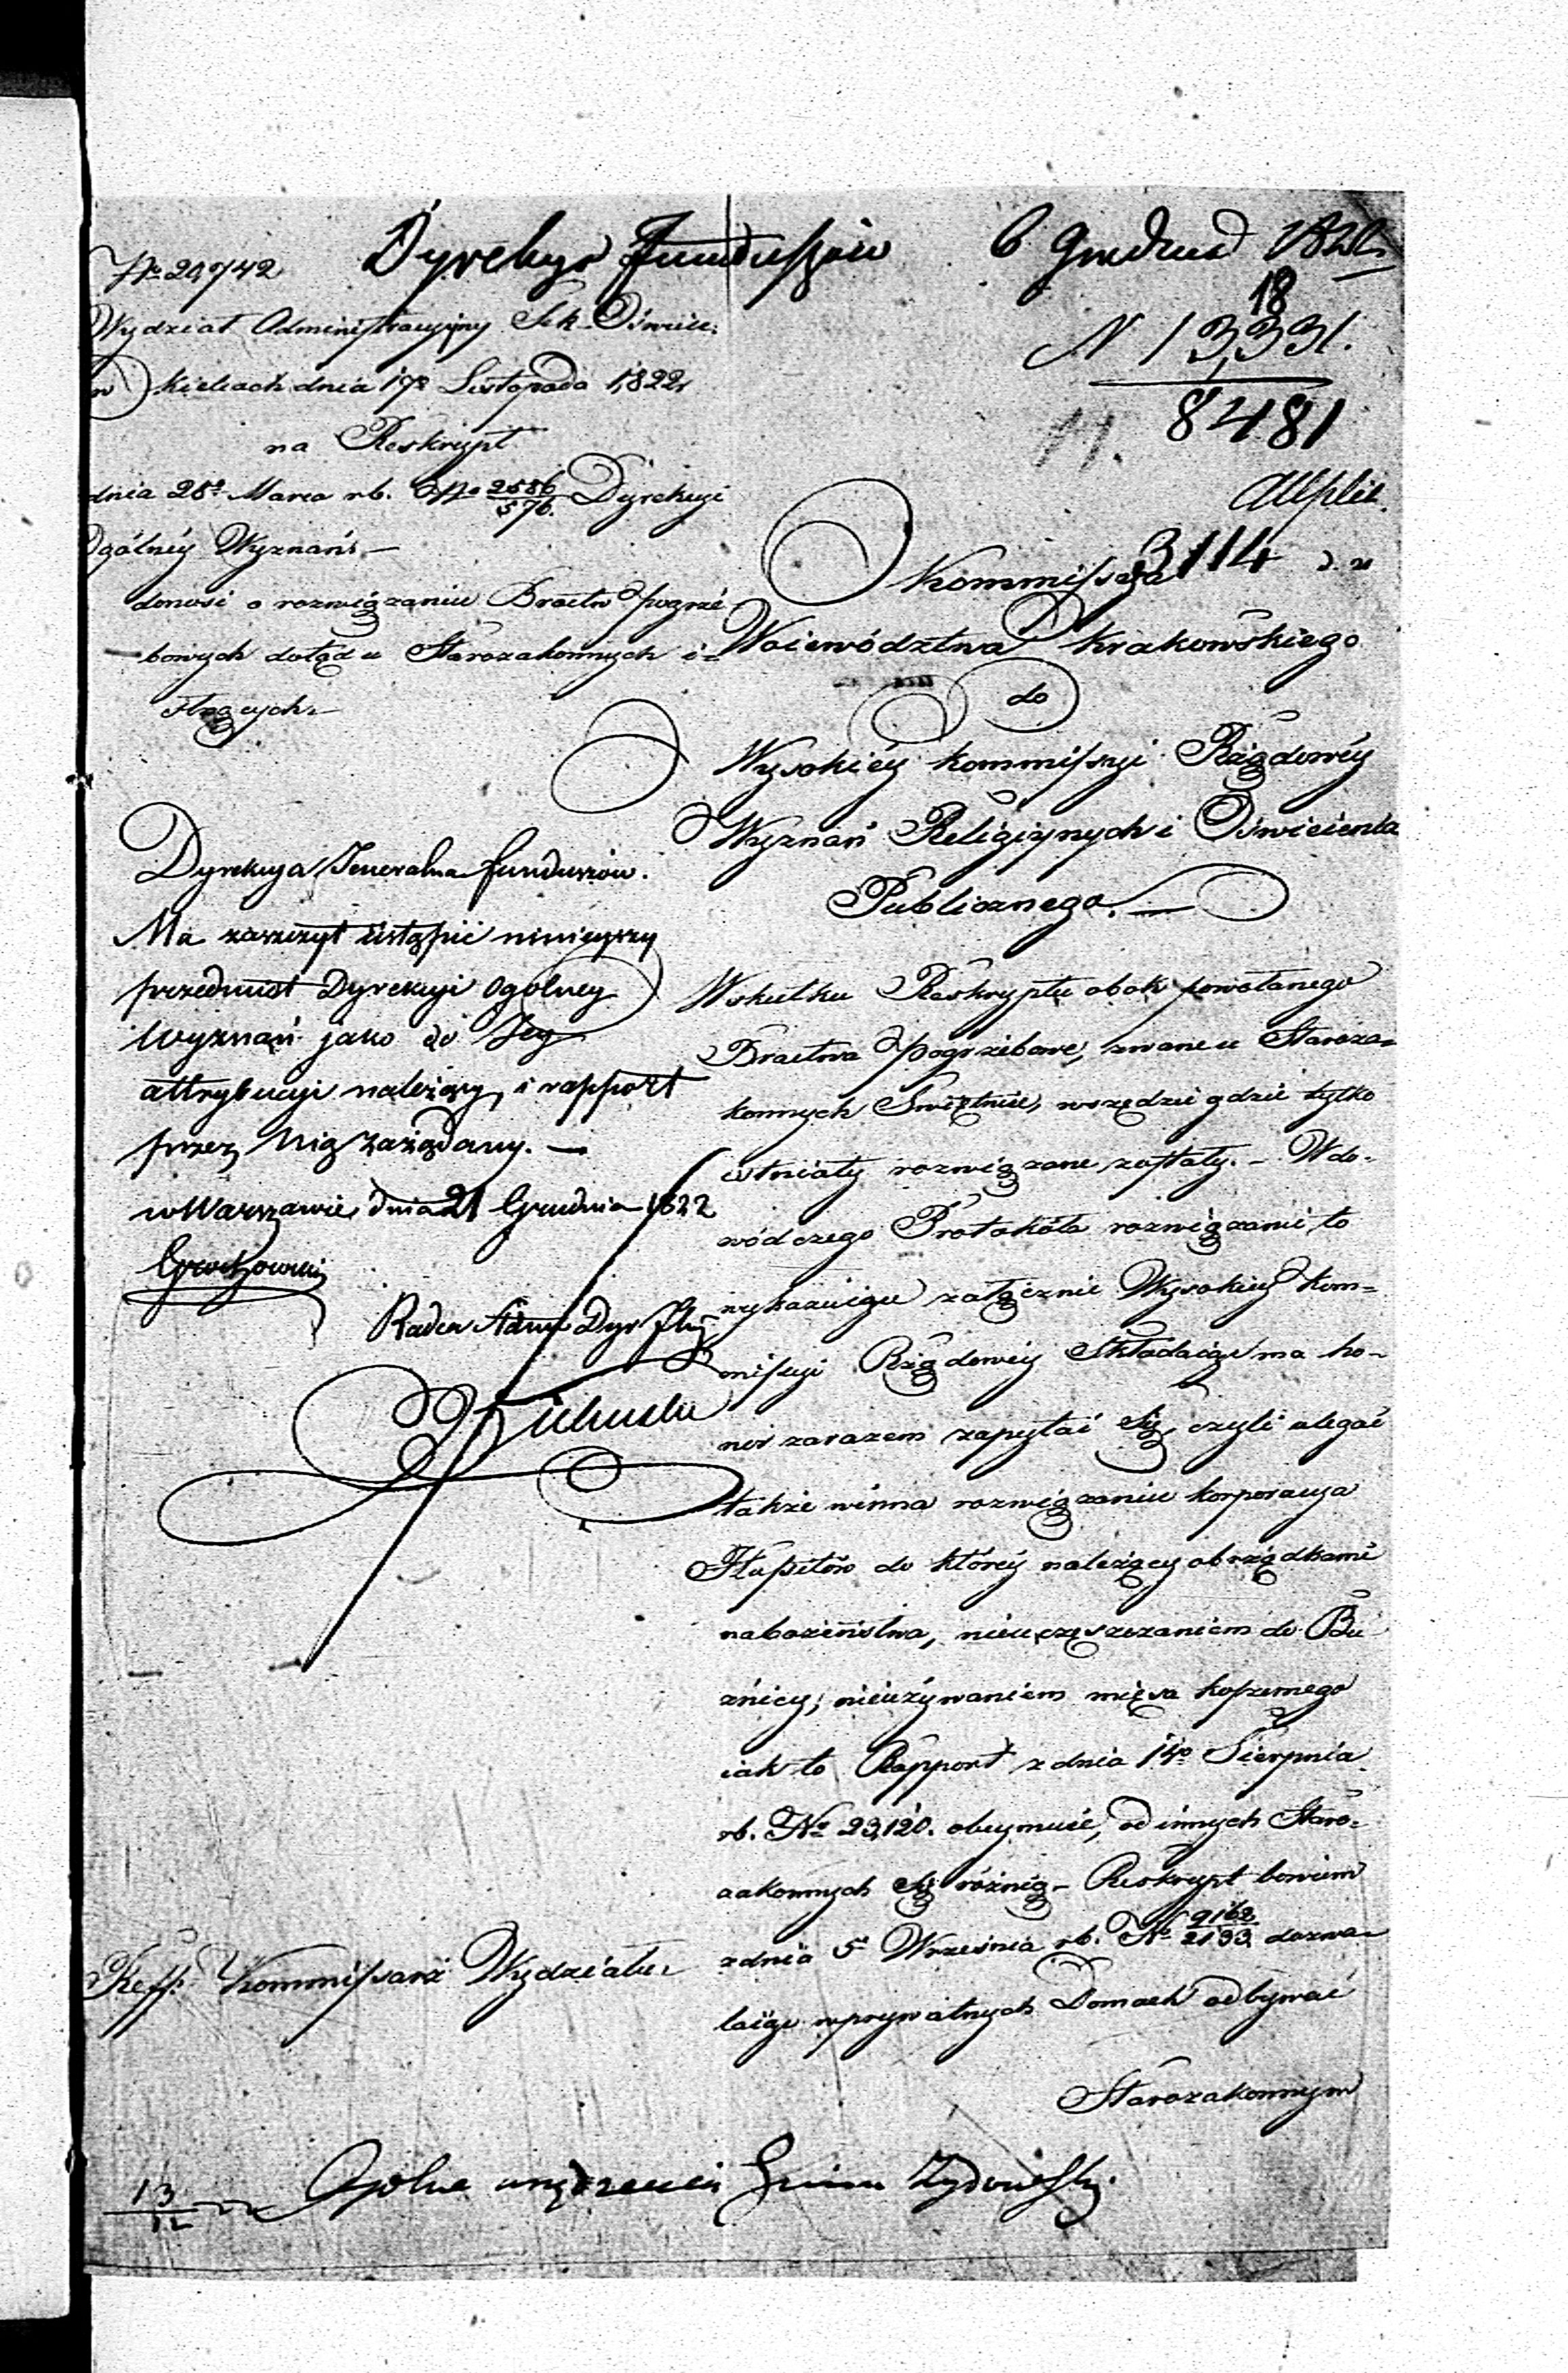 Dyrekcya Funduszów 6 Grudnia 1822
18
N 13,331.
8481
11.
3114
No 29742
Wydział Administracyjny Sek. Oświec.
w Kielcach dnia 17o Listopada 1822
na Reskrypt
dnia 28o Marca rb. No 2586/576. Dyrekcyi
Ogólnéy Wyznań. —
donosi o rozwiązaniu Bractw pogrze-
bowych dotąd u Starozakonnych i-
stnących.
Kommissya
Woiewództwa Krakowskiego
do
Wysokiéy Kommissyi Rządowéy
Wyznań Religiynych i Oświecenia
Publicznego. —
Wskutku Reskryptu obok powołanego
Bractwa pogrzebowe, zwane u Staroza-
konnych Swiętnie, wszędzie gdzie tylko
istniały rozwiązane zostały. — W do-
wód czego Protokóła rozwiązanie to
wykazuiące załącznie Wysokiéy Kom-
missyi Rządowéy składaiąc ma ho-
nor zarazem zapytać się, czyli ulegać
także winna rozwiązaniu korporacya
Husytów do któréy należący obrządkami
nabożeństwa, nieuczęszczaniem do Bu-
żnicy, nieużywaniem mięsa koszernego
iak to Rapport z dnia 14o Sierpnia
rb. No 23,120. obeymuie, od innych Staro-
zakonnych się różnią — Reskrypt bowiem
z dnia 5 Września rb. No 9162/2133 dozwa-
laiąc w prywatnych Domach odbywać
Starozakonnym
Dyrekcya Jeneralna funduszów.
Ma zaszczyt ustąpić ninieyszy
przedmiot Dyrekcyi Ogólney
Wyznań jako do Jey
attrybucyi należący, i rapport
przez Nią zażądany. —
w Warszawie dnia 21 Grudnia 1822
Radca
Reff. Kommissarz Wydziału
13/12 Ogólne urządzenia Gmin Żydowskich